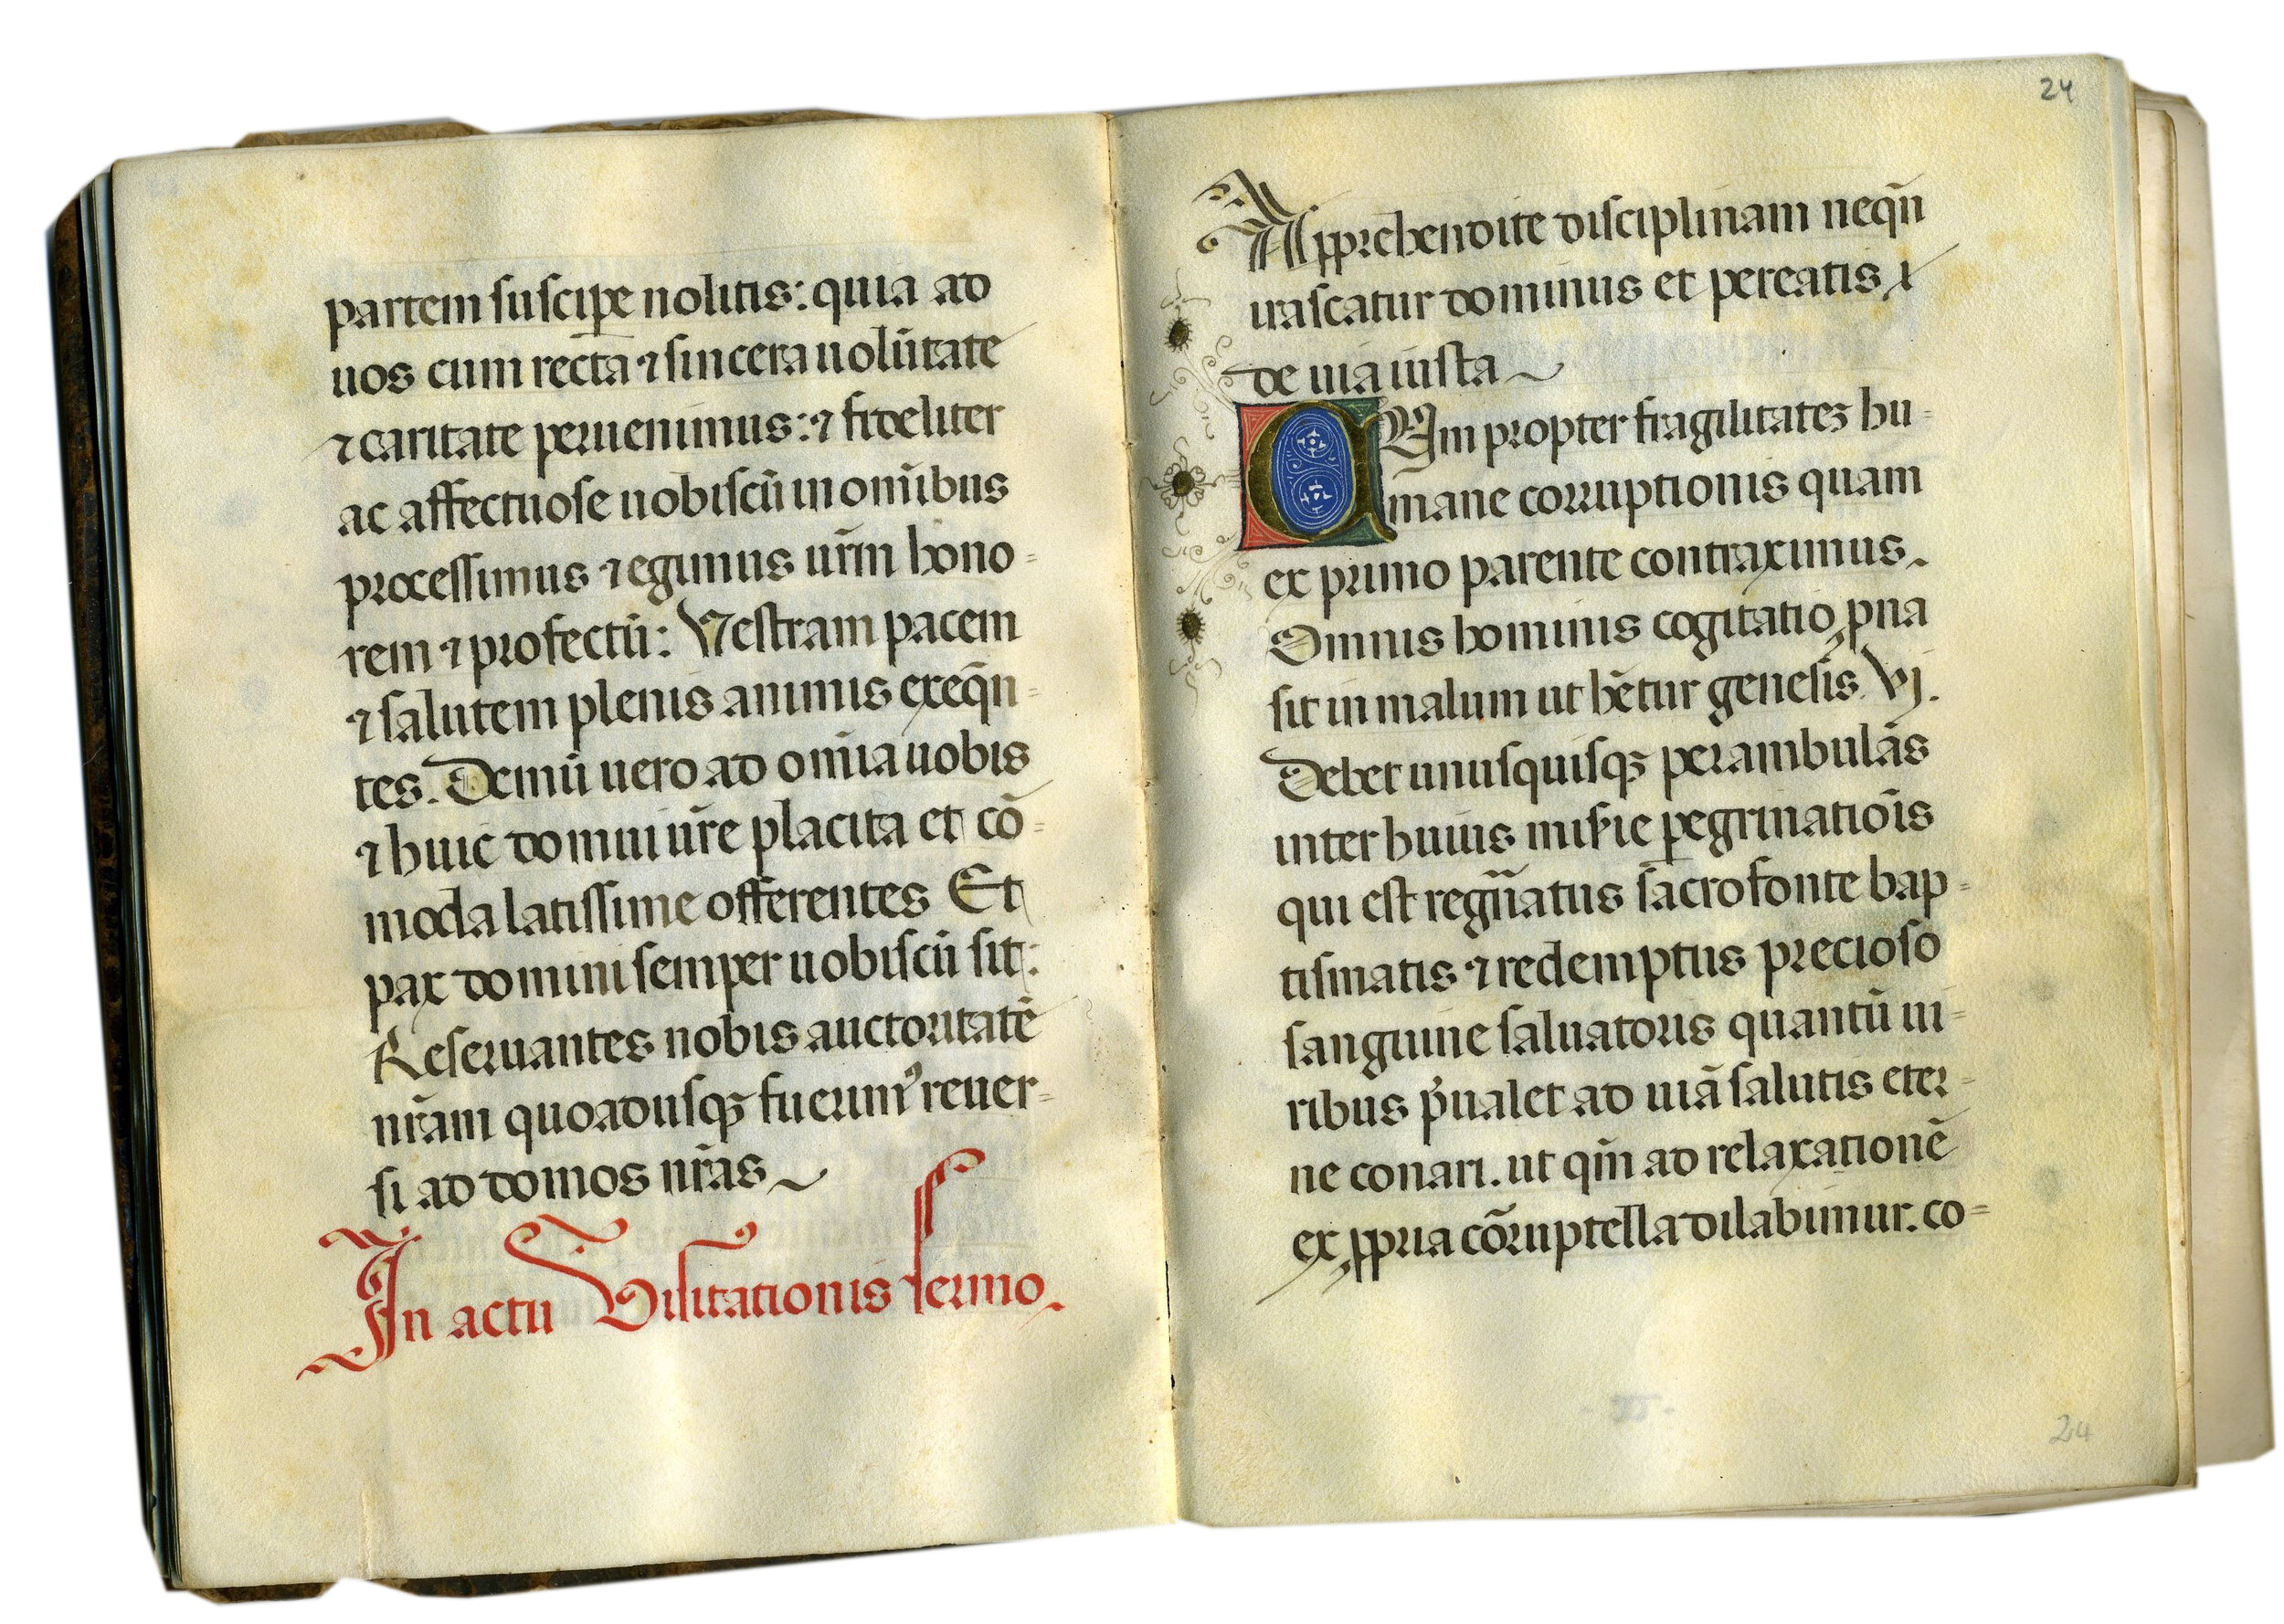 partem suscipe nolitis: quia ad
uos cum recta ⁊ sincera uolūtate
⁊ caritate peruenimus: ⁊ fideliter
ac affectuose uobiscū in om̄ibus
processimus ⁊ egimus ur̄m hono=
rem ⁊ profectū: Vestram pacem
⁊ salutem plenis animis exeqn̄=
tes. Demū uero ad om̄ia uobis
⁊ huic domui ur̄e placita et cō=
moda latissime offerentes Et
pax domini semper uobiscū sit:
Reseruantes nobis auctoritatē
nr̄am quoadusqꝫ fuerimꝰ reuer=
si ad domos nr̄as
In actu Visitationis sermo.
24
Apprehendite disciplinam neqn̄
irascatur dominus et pereatis
de uia iusta
CUm propter fragilitatez hu=
mane corruptionis quam
ex primo parente contraximus.
Omnis hominis cogitatio ꝓna
sit in malum ut hētur genesis Vj.
Debet unusquisqꝫ perambulās
inter huius mis̄ie ꝑegrinatiōis
qui est regn̄atus sacro fonte bap=
tismatis ⁊ redemptus precioso
sanguine saluatoris quantū ui=
ribus p̄ualet ad uiā salutis eter=
ne conari. ut qm̄ ad relaxationē
ex ꝓpria cōrruptella dilabimur. co=
24